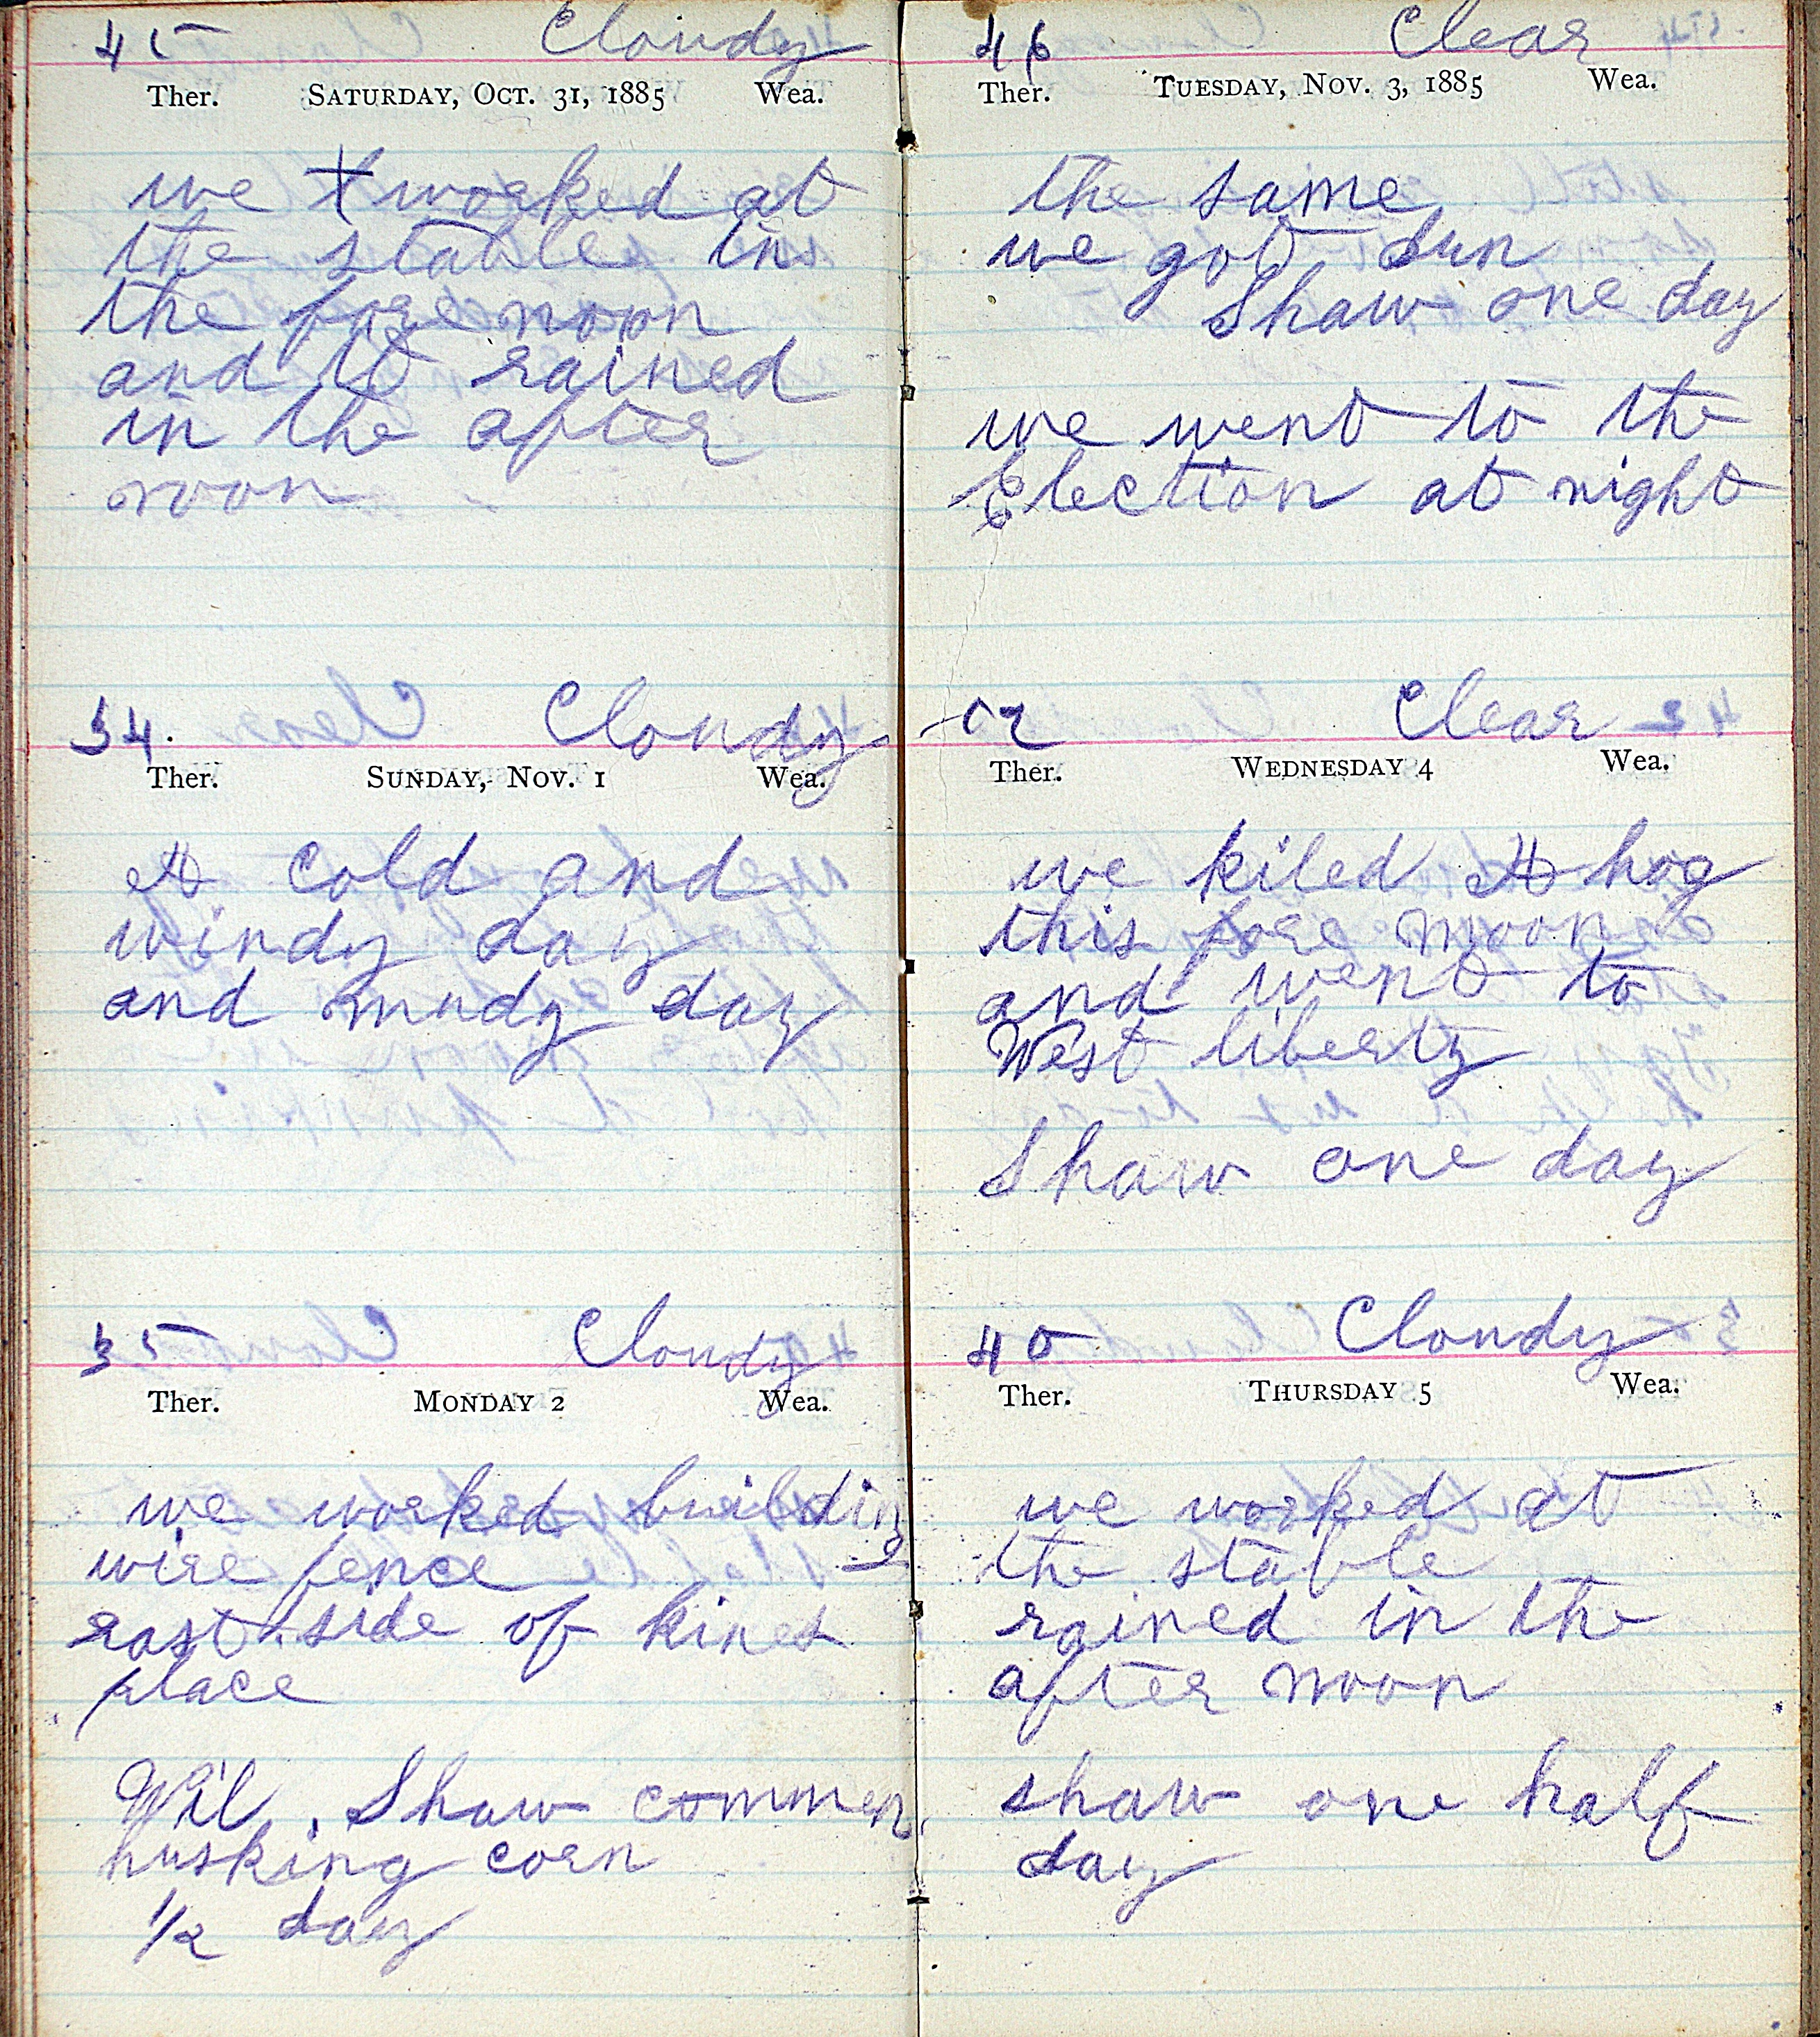 45 Cloudy
Ther. SATURDAY, OCT. 31, 1885 Wea.
we worked at
the stable in
the fore noon
and it rained
in the after
noon
34. Cloudy
Ther. SUNDAY, NOV. 1 Wea.
A cold and
windy day
and mudy day
35 Cloudy
Ther. MONDAY 2 Wea.
we worked building
wire fence
east side of kines
place
Wil. Shaw commen
husking corn
1/2 day
46 Clear
Ther. TUESDAY, NOV. 3, 1885 Wea.
the same
we got dun
Shaw one day
we went to the
Election at night
Clear
Ther. WEDNESDAY 4 Wea.
we kiled A hog
this fore noon
and went to
West liberty
Shaw one day
40 Cloudy
Ther. THURSDAY 5 Wea.
we worked at
the stable
rained in the
after noon
shaw one half
day